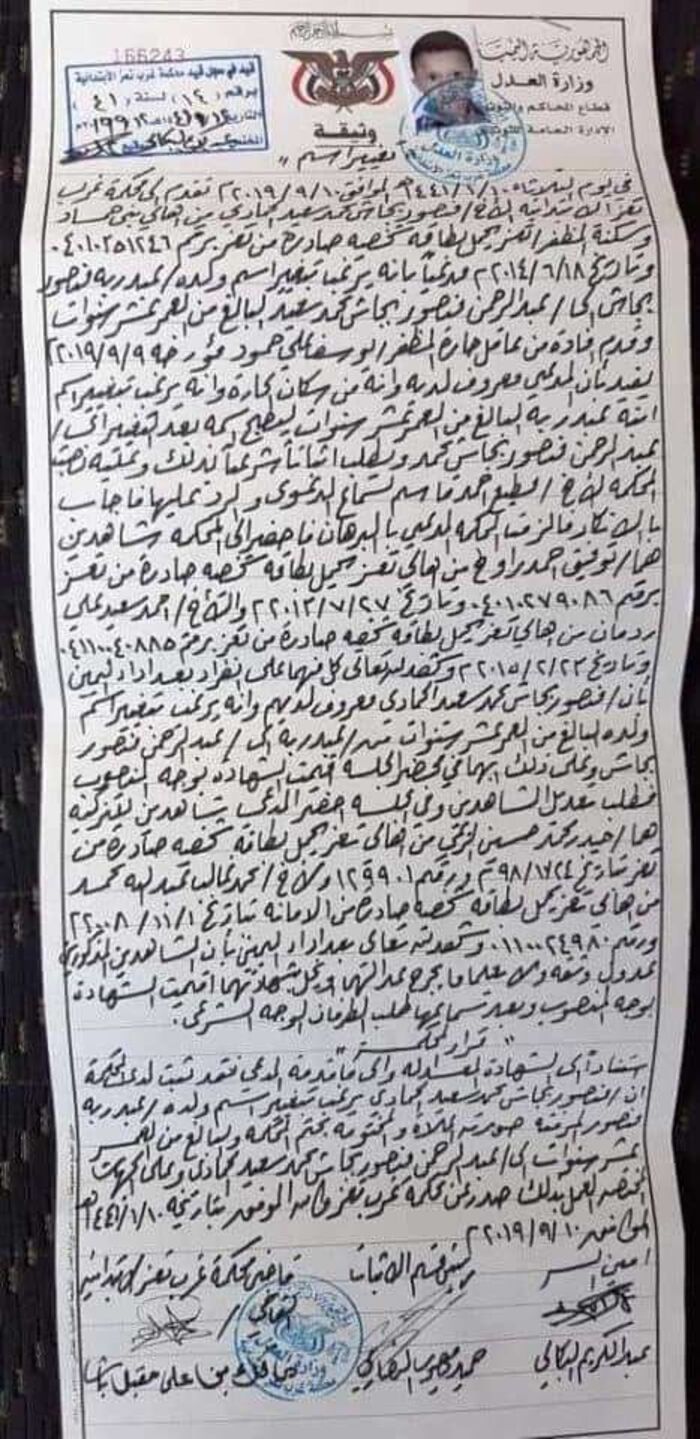 بسم الله الرحمن الرحيم
الجمهورية اليمنية
وزارة العدل
قطاع المحاكم والتوثيق
الادارة العامة للتوثيق
166243
قيد في سجل قيد محكمة غرب تعز الابتدائية
برقم (١٤) لسنة (٤١)
التاريخ
وثيقة
"تغيير اسم"
في يوم الثلاثاء ١٤٤١/١/١٠هـ الموافق ٢٠١٩/٩/١٠م تقدم الى محكمة غرب
تعز الابتدائية الاخ/ منصور بجاش محمد سعيد الحمادي من اهالي بني حماد
وسكنة المظفر تعز يحمل بطاقة شخصية صادرة من تعز برقم ٠٤٠١٠٢٥١٢٤٦
وتاريخ ٢٠١٤/٦/١٨م مدعياً بانه يرغب تغيير اسم ولده/ عبدربه منصور
بجاش الى/ عبدالرحمن منصور بجاش محمد سعيد البالغ من العمر عشر سنوات
وقدم افادة من عاقل حارة المظفر علي حمود مؤرخة ٢٠١٩/٩/٩م
يفيد بأن المدعي معروف لديه وانه من سكان الحارة وانه يرغب تغيير اسم
ابنه عبدربه البالغ من العمر عشر سنوات ليصبح اسمه بعد التغيير الى/
عبدالرحمن منصور بجاش محمد ويطلب اثباتاً شرعياً بذلك وعليه نصبت
المحكمة الاخ/ احمد قاسم لسماع الدعوى والرد عليها فاجاب
بالانكار فالزمت المحكمة المدعي بالبرهان فاحضر الى المحكمة شاهدين
هما/ توفيق احمد راوح من اهالي تعز يحمل بطاقة شخصية صادرة من تعز
برقم ٠٤٠١٠٢٧٩٠٨٦ وتاريخ ٢٠١٣/٧/٢٧م والاخ/ احمد سعيد علي
ردمان من اهالي تعز يحمل بطاقة شخصية صادرة من تعز برقم ٠٤١١٠٠٤٠٨٨٥
وتاريخ ٢٠١٥/٢/٢٣م وشهد لله تعالى كل منهما على انفراد بعد اداء اليمين
بأن/ منصور بجاش محمد سعيد الحمادي معروف لديهم وانه يرغب تغيير اسم
ولده البالغ من العمر عشر سنوات من/ عبدربه الى/ عبدالرحمن منصور
بجاش وعلى ذلك ابهما في محضر الجلسة اقيمت الشهادة بوجه المنصوب
فطلب تعديل الشاهدين وفي الجلسة احضر المدعي شاهدين للتزكية
هما/ حيدر محمد حسين من اهالي تعز يحمل بطاقة شخصية صادرة من
تعز بتاريخ ورقم ١٢٩٩٠١ والاخ/ محمد غالب عبدالله محمد
من اهالي تعز يحمل بطاقة شخصية صادرة من الامانة بتاريخ ٢٠٠٨/١١/١م
ورقم ٠١١٠٠٢٤٩٨٠ وشهد لله تعالى بعد اداء اليمين بأن الشاهدين المذكورين
عدول وثقة ولا علما ما يجرح عدالتهما اقيمت الشهادة
بوجه المنصوب وبعد سماعها طلب الطرفان الوجه الشرعي.
"قرار المحكمة"
استناداً الى الشهادة العدلة والى ما قدمه المدعي فقد ثبت لدى المحكمة
ان/ منصور بجاش محمد سعيد الحمادي يرغب تغيير اسم ولده/ عبدربه
منصور المرفقة صورته اعلاه والمختومة بختم المحكمة والبالغ من العمر
عشر سنوات الى/ عبدالرحمن منصور بجاش محمد سعيد الحمادي وعلى الجهات
المختصة العمل بذلك صدر عن محكمة غرب تعز والله الموفق بتاريخه ١٤٤١/١/١٠هـ
الموافق ٢٠١٩/٩/١٠م
امين السر
رئيس قسم الاثبات
قاضي محكمة غرب تعز الابتدائية
القاضي/
عبدالكريم البكالي
علي مقبل باشا